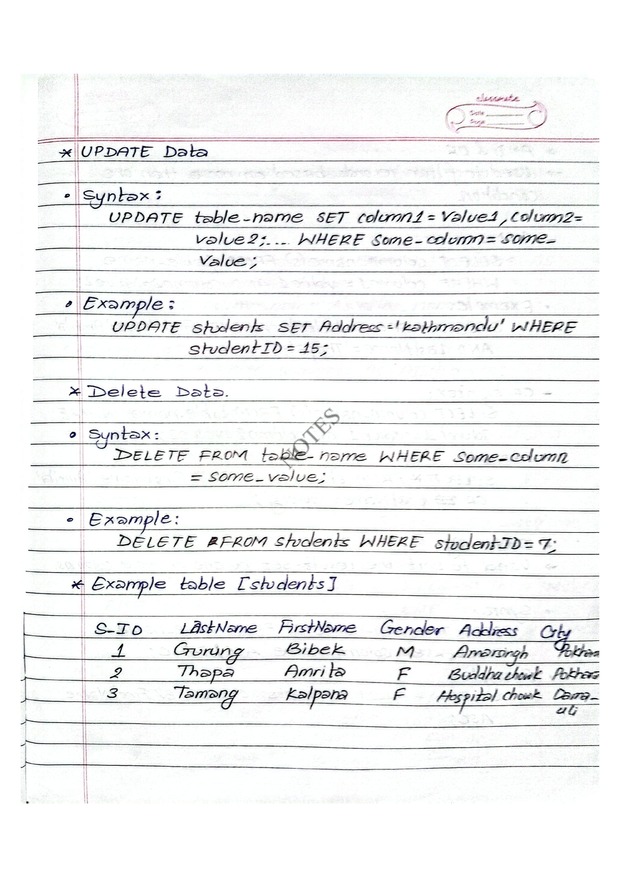 classmate
Date
Page
* UPDATE Data
• Syntax:
UPDATE table-name SET column1 = Value1, Column2=
value2;... WHERE some-column = some-
Value;
• Example:
UPDATE students SET Address = 'Kathmandu' WHERE
studentID = 15;
* Delete Data.
• Syntax:
DELETE FROM table-name WHERE some-column
= some-value;
NOTES
• Example:
DELETE FROM students WHERE studentID = 7;
* Example table [students]
S-ID LastName FirstName Gender Address City
1 Gurung Bibek M Amarsingh Pokhara
2 Thapa Amrita F Buddha chowk Pokhara
3 Tamang Kalpana F Hospital chowk Dama-
uli